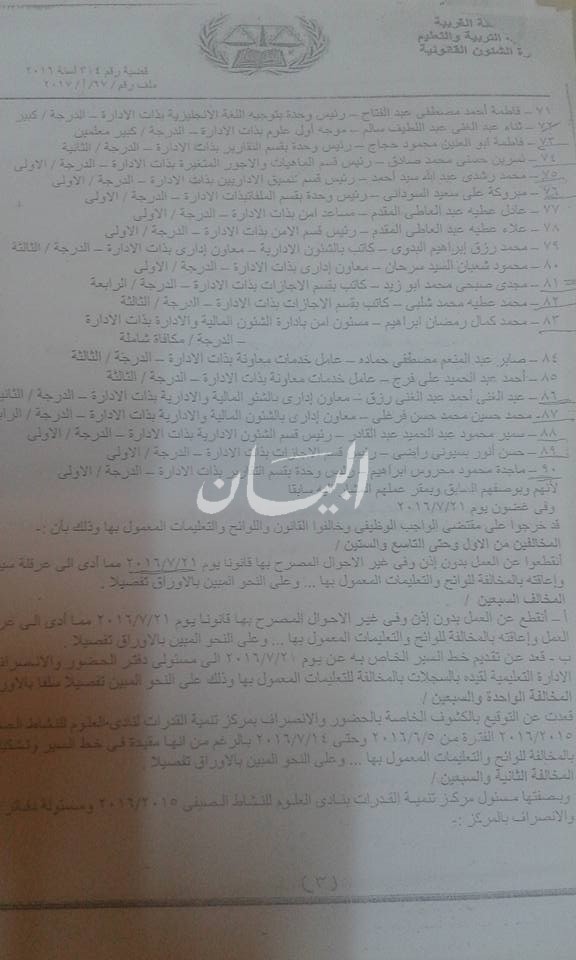 ة الغربية
التربية والتعليم
رة الشئون القانونية
قضية رقم ٣١٤ لسنة ٢٠١٦
ملف رقم / ٦٧/ أ/ ٢٠١٧
٧١ – فاطمة أحمد مصطفى عبد الفتاح – رئيس وحدة بتوجيه اللغة الانجليزية بذات الادارة – الدرجة / كبير
٧٢ – ثناء عبد الغنى عبد اللطيف سالم – موجه أول علوم بذات الادارة – الدرجة / كبير معلمين
٧٣ – فاطمة أبو العنين محمود حجاج – رئيس وحدة بقسم التقارير بذات الادارة – الدرجة / الثانية
٧٤ – نسرين حسنى محمد صادق – رئيس قسم الماهيات والاجور المتغيرة بذات الادارة – الدرجة / الاولى
٧٥ – محمد رشدى عبد الله سيد احمد – رئيس قسم تنسيق الاداريين بذات الادارة – الدرجة / الاولى
٧٦ – مبروكة على سعيد السودانى – رئيس وحدة بقسم الملفات بذات الادارة – الدرجة / الاولى
٧٧ – عادل عطيه عبد العاطى المقدم – مساعد امن بذات الادارة – الدرجة / الاولى
٧٨ – علاء عطيه عبد العاطى المقدم – رئيس قسم الامن بذات الادارة – الدرجة / الاولى
٧٩ – محمد رزق ابراهيم البدوى – كاتب بالشئون الادارية – معاون إدارى بذات الادارة – الدرجة / الثالثة
٨٠ – محمود شعبان السيد سرحان – معاون إدارى بذات الادارة – الدرجة / الاولى
٨١ – مجدى صبحى محمد ابو زيد – كاتب بقسم الاجازات بذات الادارة – الدرجة / الرابعة
٨٢ – محمد عطيه محمد شلبى – كاتب بقسم الاجازات بذات الادارة – الدرجة / الثالثة
٨٣ – محمد كمال رمضان ابراهيم – مسئول امن بإدارة الشئون المالية والادارة بذات الادارة
– الدرجة / مكافاة شاملة
٨٤ – صابر عبد المنعم مصطفى حماده – عامل خدمات معاونة بذات الادارة – الدرجة / الثالثة
٨٥ – أحمد عبد الحميد على فرج – عامل خدمات معاونة بذات الادارة – الدرجة / الثالثة
٨٦ – عبد الغنى أحمد عبد الغنى رزق – معاون إدارى بالشئو المالية والادارية بذات الادارة – الدرجة / الثاني
٨٧ – محمد حسين محمد حسن فرغلى – معاون إدارى بالشئون المالية والادارية بذات الادارة – الدرجة / الراب
٨٨ – سمير محمود عبد الحميد عبد القادر – رئيس قسم الشئون الادارية بذات الادارة – الدرجة / الاولى
٨٩ – حسن أنور بسيونى راضى – رئيس قسم الاجازات بذات الادارة – الدرجة / الاولى
٩٠ – ماجدة محمود محروس ابراهيم – رئيس وحدة بقسم التقارير بذات الادارة – الدرجة / الاولى
لأنهم وبوصفهم السابق وبمقر عملهم المشار اليه سابقا
وفى غضون يوم ٢٠١٦/٧/٢١
البيان
قد خرجوا على مقتضى الواجب الوظيفى وخالفوا القانون واللوائح والتعليمات المعمول بها وذلك بأن :-
المخالفين من الاول وحتى التاسع والستين /
أنقطعوا عن العمل بدون إذن وفى غير الاحوال المصرح بها قانونا يوم ٢٠١٦/٧/٢١ مما أدى الى عرقلة سي
وإعاقته بالمخالفة للوائح والتعليمات المعمول بها ... وعلى النحو المبين بالاوراق تفصيلا .
المخالف السبعين /
أ – أنقطع عن العمل بدون إذن وفى غير الاحوال المصرح بها قانونا يوم ٢٠١٦/٧/٢١ مما أدى الى عر
العمل وإعاقته بالمخالفة للوائح والتعليمات المعمول بها ... وعلى النحو المبين بالاوراق تفصيلا
ب – قعد عن تقديم خط السير الخاص به عن يوم ٢٠١٦/٧/٢١ الى مسئولى دفتر الحضور والانصراف
الادارة التعليمية لقيده بالسجلات بالمخالفة للتعليمات المعمول بها وذلك على النحو المبين تفصيلا سلفا بالاور
المخالفة الواحدة والسبعين /
قعدت عن التوقيع بالكشوف الخاصة بالحضور والانصراف بمركز تنمية القدرات لنادى العلوم للنشاط الص
٢٠١٦/٢٠١٥ الفترة من ٢٠١٦/٦/٥ وحتى ٢٠١٦/٧/١٤ بالرغم من انها مقيدة فى خط السير
بالمخالفة للوائح والتعليمات المعمول بها ... وعلى النحو المبين بالاوراق تفصيلا
المخالفة الثانية والسبعين /
وبصفتها مسئول مركز تنمية القدرات بنادى العلوم للنشاط الصيفى ٢٠١٦/٢٠١٥ ومسئولة دفاتر
والانصراف بالمركز :-
(٦)